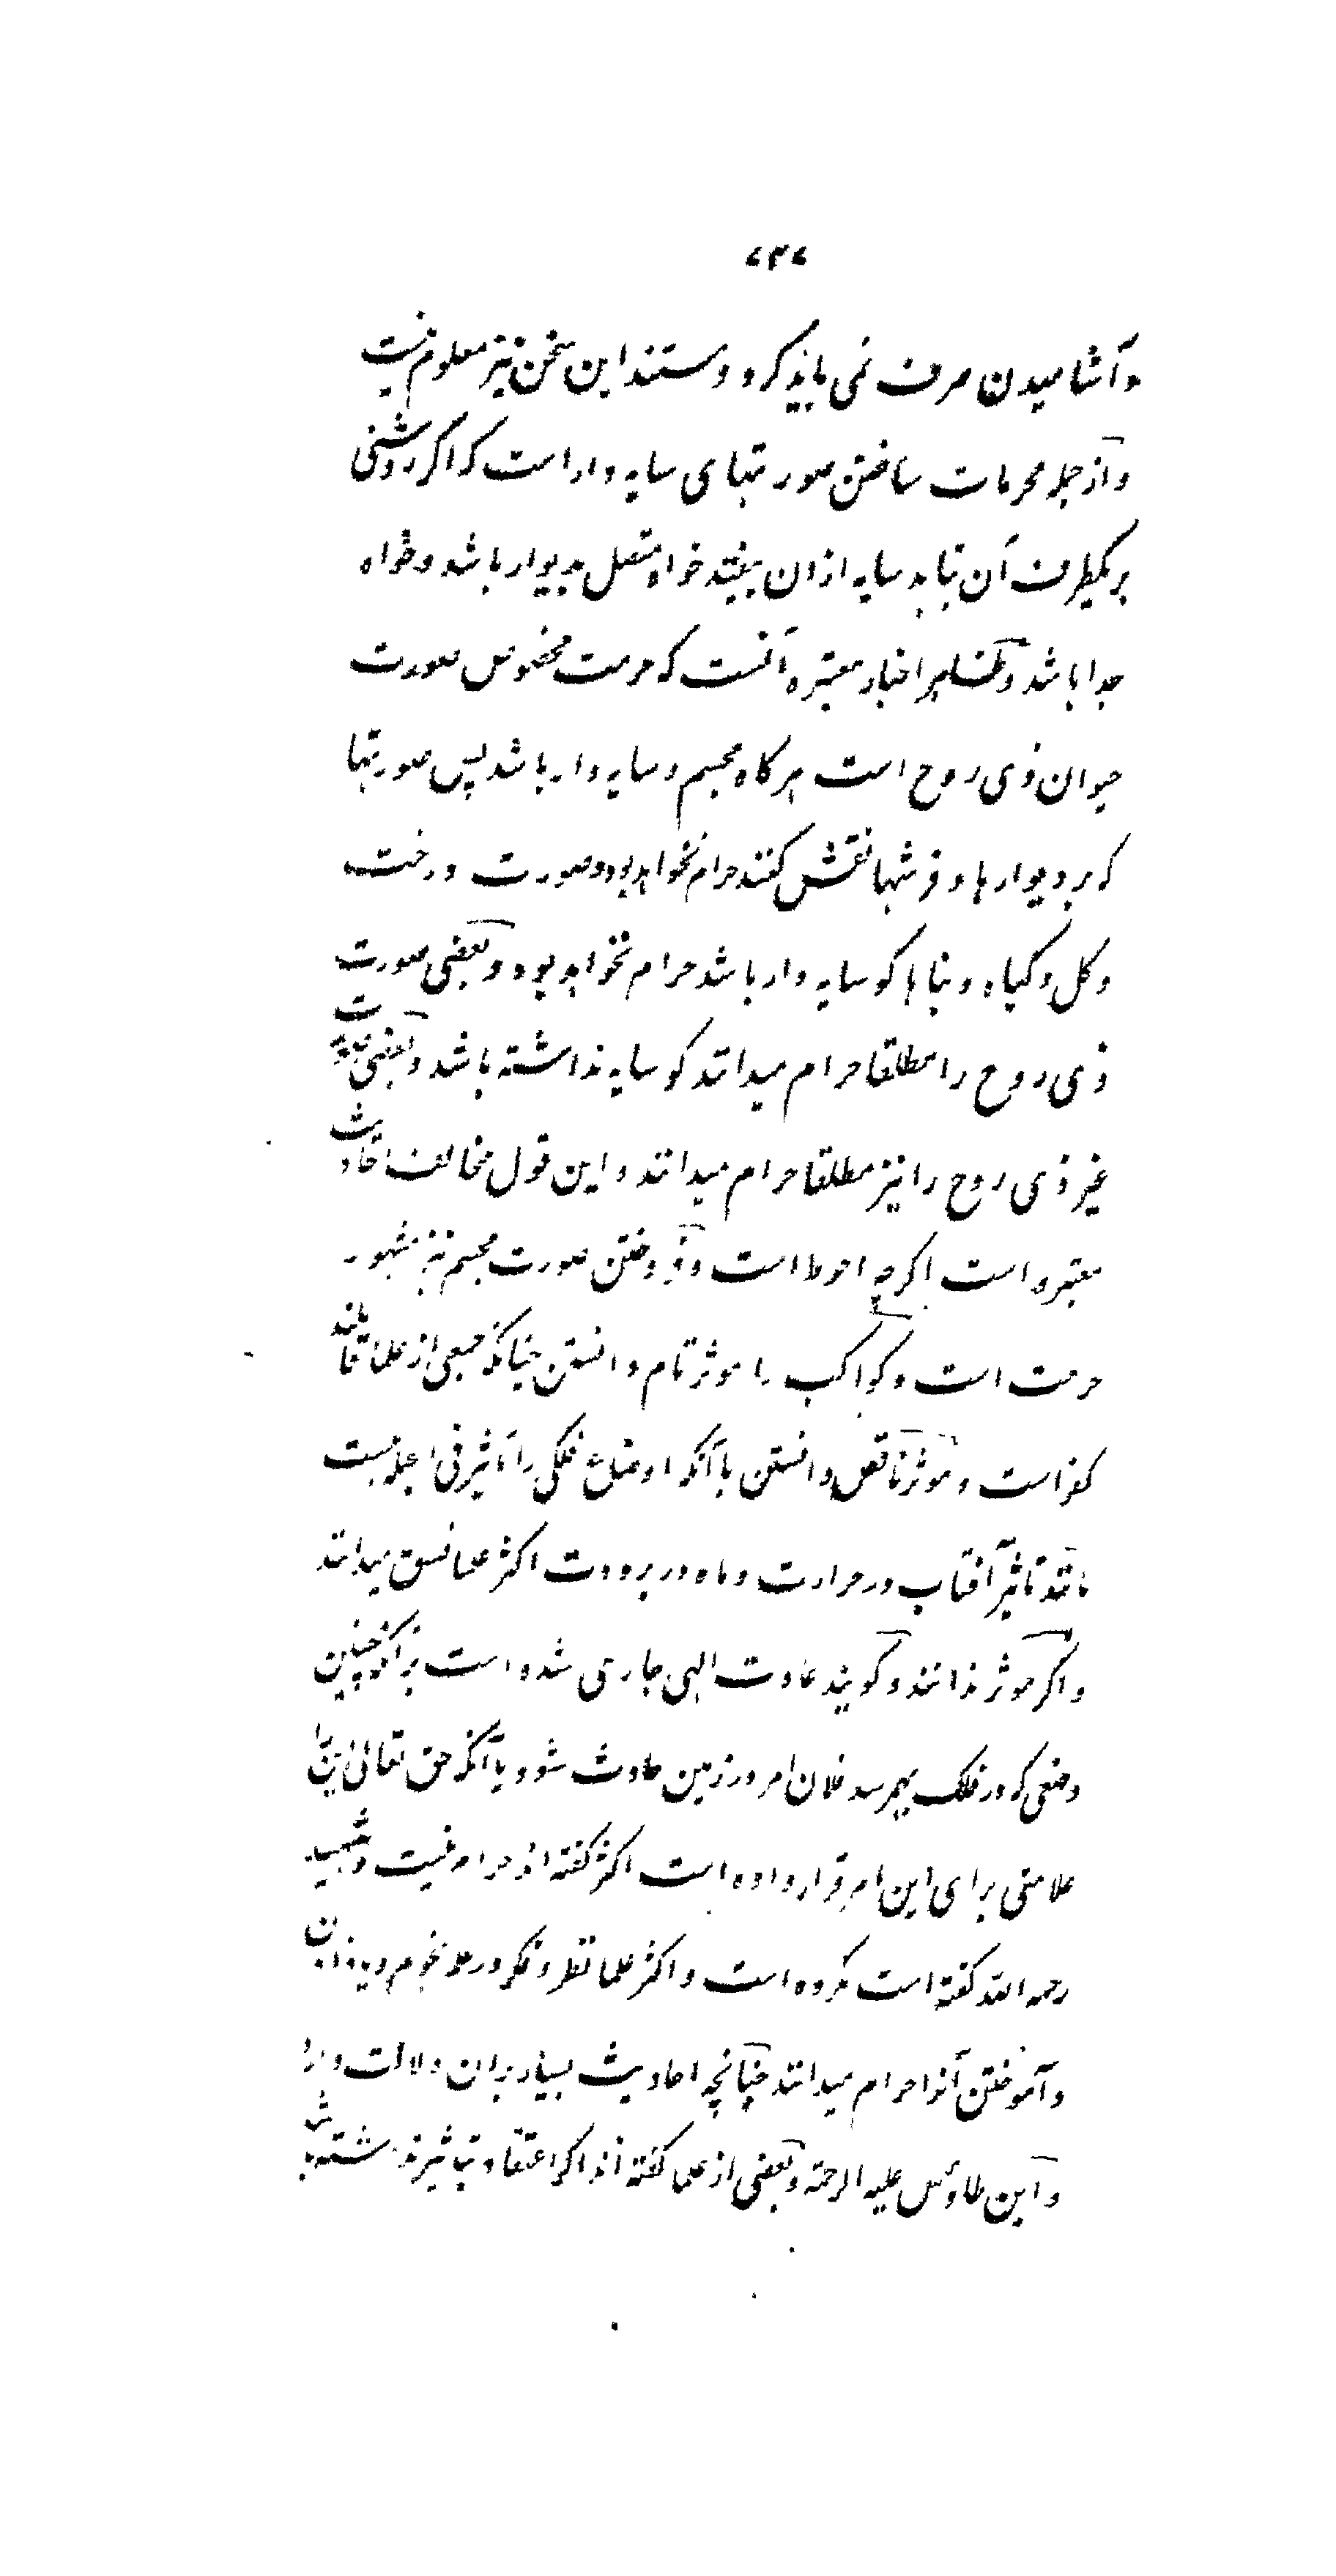 ۷۳۷
و آشامیدن صرف نمی باید کرد و مستند این سخن نیز معلوم نیست
و از جمله محرمات ساختن صورتهای سایه دار است که اگر روشنی
بر یکطرف آن بتابد سایه ازان بیفتد خواه متصل بدیوار باشد و خواه
جدا باشد و ظاهر اخبار معتبره آنست که حرمت مخصوص صورت
حیوان ذی روح است هرکاه مجسم و سایه دار باشد پس صورتها
که بر دیوارها و فرشها نقش کنند حرام نخواهد بود و صورت درخت
و کل و کیاه و بناها کو سایه دار باشد حرام نخواهد بود و بعضی صورت
ذی روح را مطلقا حرام میدانند کو سایه نداشته باشد و بعضی صورت
غیر ذی روح را نیز مطلقا حرام میدانند و این قول مخالف احادیث
معتبره است اکرچه احوط است و فروختن صورت مجسم نیز مشهور
حرمت است و کواکب را موثر تام دانستن چنانکه جمعی از علما قایلند
کفر است و موثر ناقص دانستن با آنکه اوضاع فلکی را تاثیر فی الجمله هست
مانند تاثیر آفتاب در حرارت و ماه در برودت اکثر علما فسق میدانند
و اکر موثر ندانند و کویند عادت الهی جاری شده است بر آنکه چنین
وضعی که در فلک بهمرسد فلان امر در زمین حادث شود یا آنکه حق تعالی این را
علامتی برای این امر قرار داده است اکثر کفته اند حرام نیست و شهید
رحمه الله کفته است مکروه است و اکثر علما نظر و فکر در علم نجوم و یاد دادن
و آموختن آنرا حرام میدانند چنانچه احادیث بسیار بران دلالت دارد
و ابن طاوس علیه الرحمة و بعضی از علما کفته اند اکر اعتقاد بتاثیر نداشته باشد